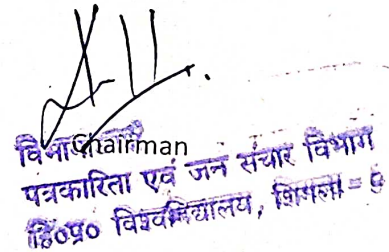 Chairman
पत्रकारिता एवं जन संचार विभाग
हि०प्र० विश्वविद्यालय, शिमला = 5